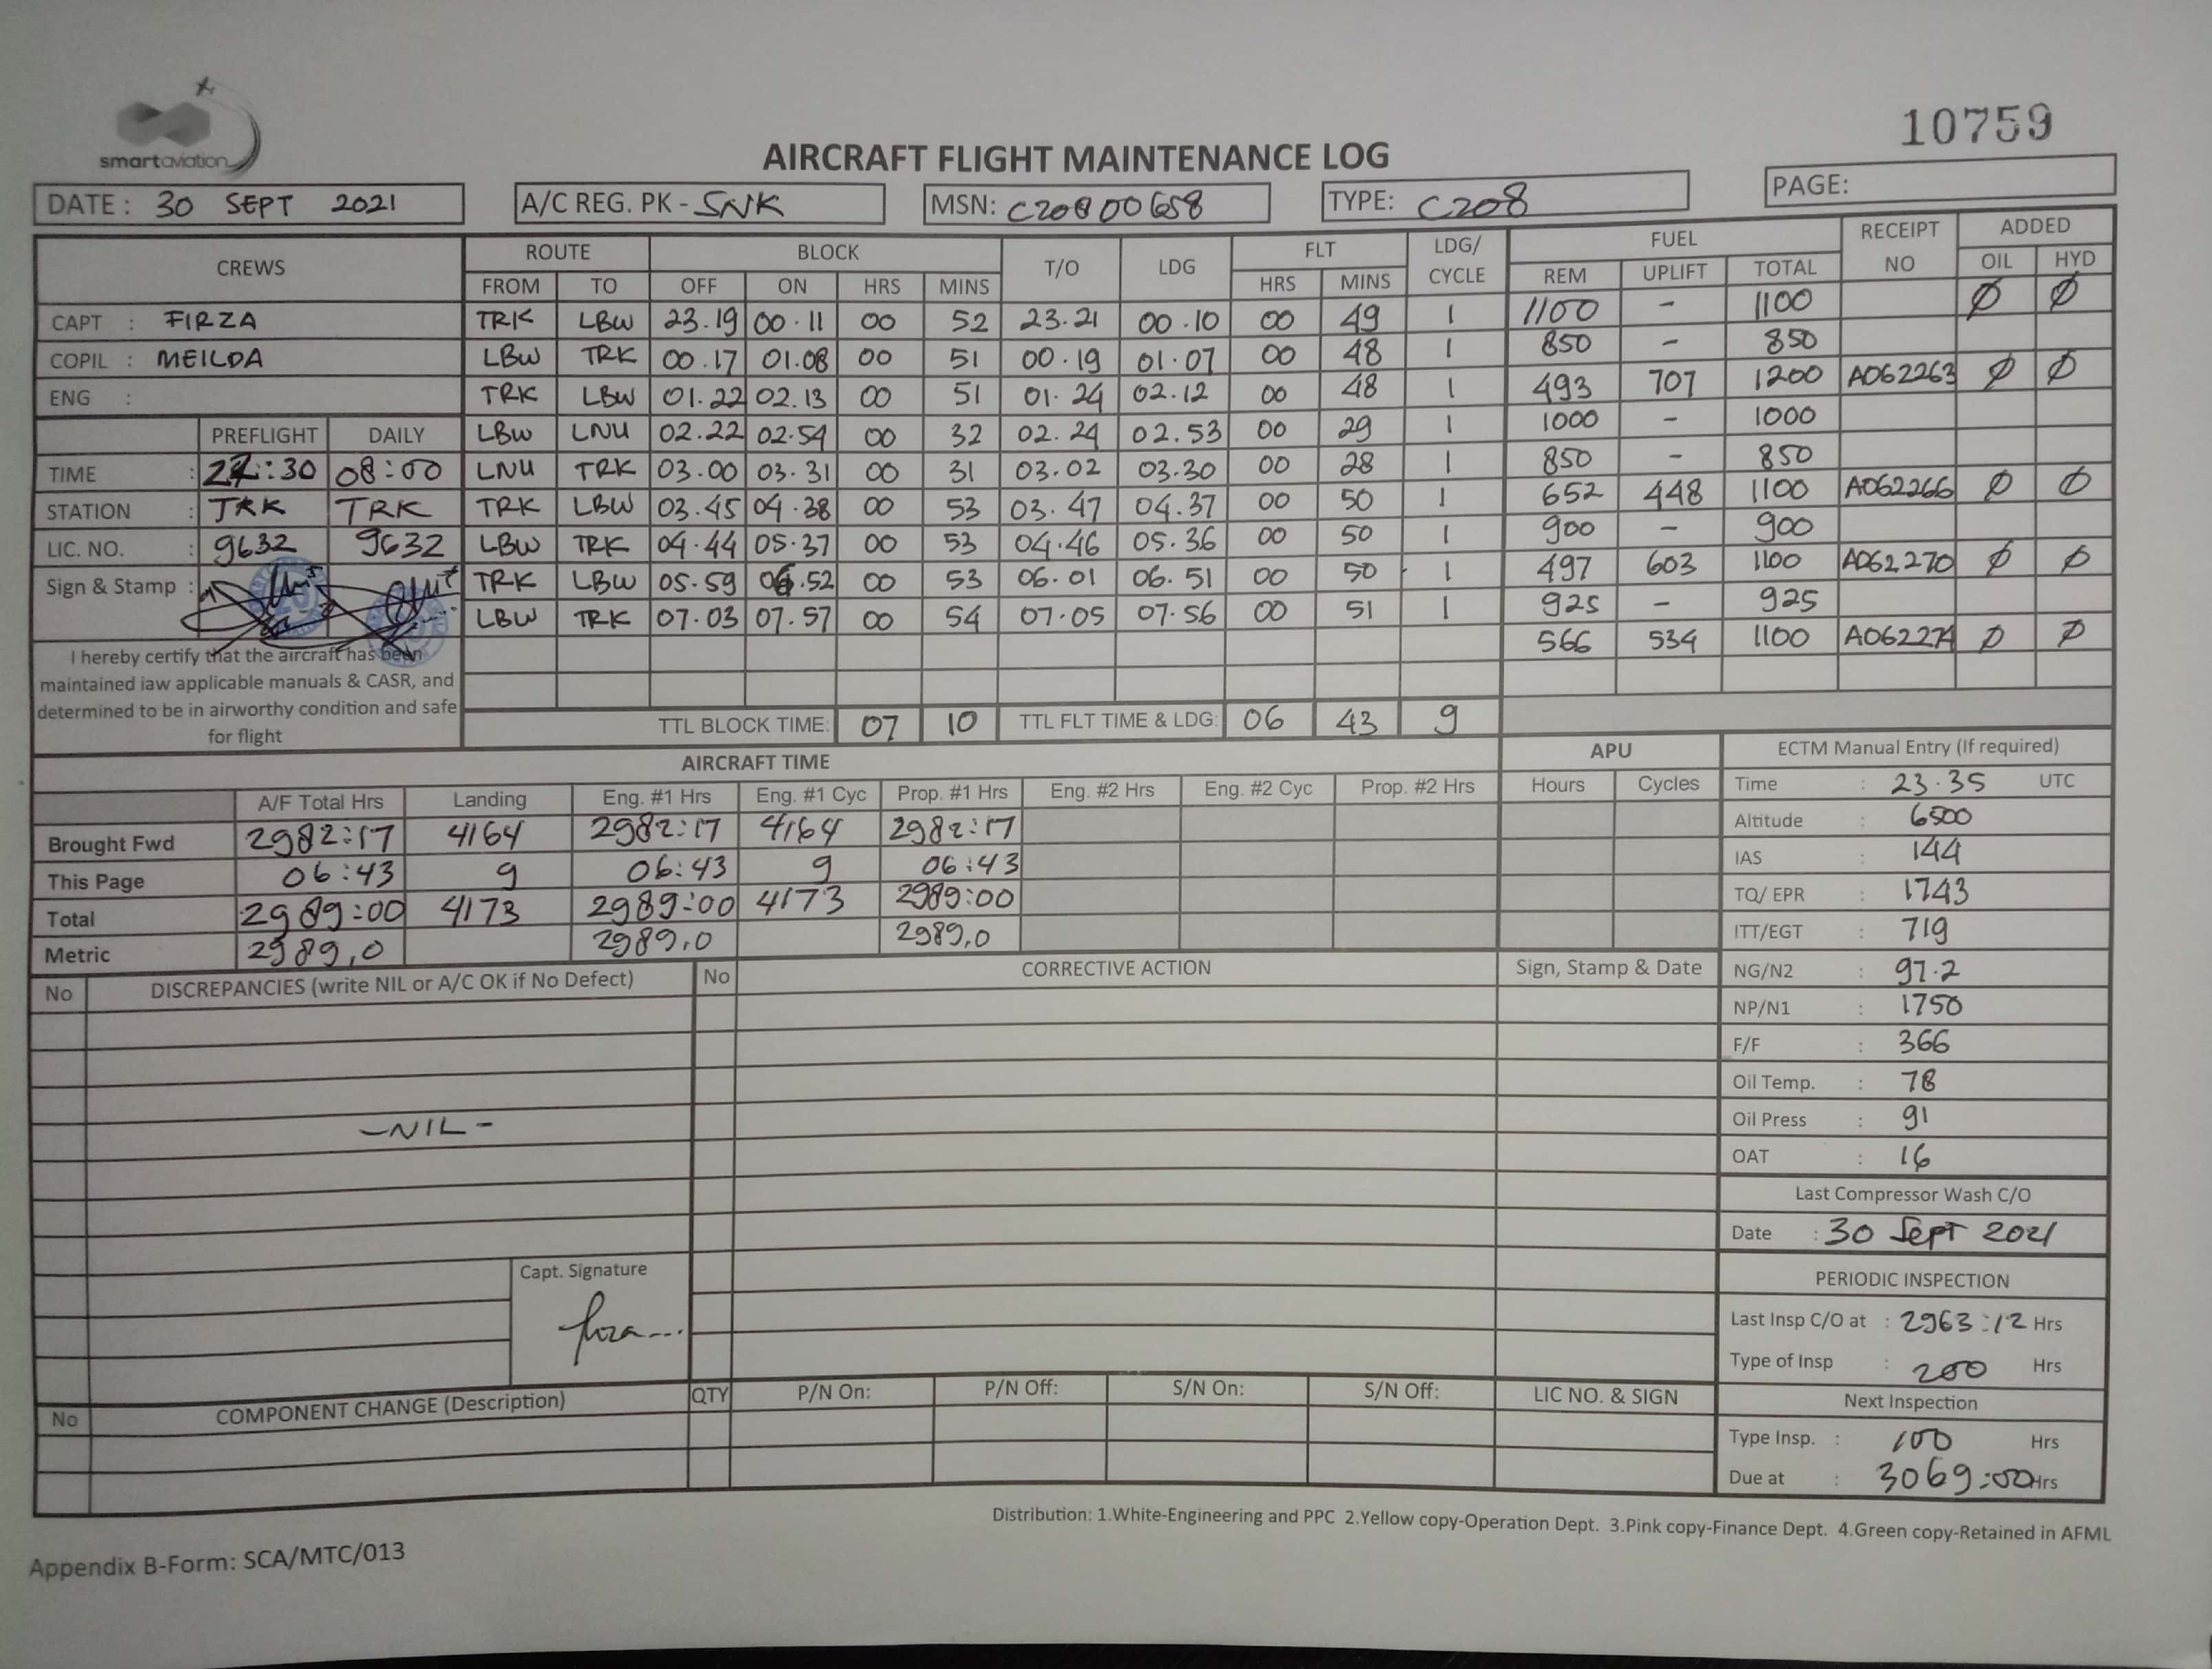 smartaviation
10759
AIRCRAFT FLIGHT MAINTENANCE LOG
DATE : 30 SEPT 2021 A/C REG. PK - SNK MSN: C20800658 TYPE: C208 PAGE:
CREWS ROUTE BLOCK T/O LDG FLT LDG/ CYCLE FUEL RECEIPT NO ADDED
FROM TO OFF ON HRS MINS HRS MINS REM UPLIFT TOTAL OIL HYD
CAPT : FIRZA TRK LBW 23.19 00.11 00 52 23.21 00.10 00 49 1 1100 - 1100 Ø Ø
COPIL : MEILDA LBW TRK 00.17 01.08 00 51 00.19 01.07 00 48 1 850 - 850
ENG : TRK LBW 01.22 02.13 00 51 01.24 02.12 00 48 1 493 707 1200 A062263 Ø Ø
PREFLIGHT DAILY LBW LNU 02.22 02.54 00 32 02.24 02.53 00 29 1 1000 - 1000
TIME : :30 08:00 LNU TRK 03.00 03.31 00 31 03.02 03.30 00 28 1 850 - 850
STATION : TRK TRK TRK LBW 03.45 04.38 00 53 03.47 04.37 00 50 1 652 448 1100 A062266 Ø Ø
LIC. NO. : 9632 9632 LBW TRK 04.44 05.37 00 53 04.46 05.36 00 50 1 900 - 900
Sign & Stamp : TRK LBW 05.59 06.52 00 53 06.01 06.51 00 50 1 497 603 1100 A062270 Ø Ø
LBW TRK 07.03 07.57 00 54 07.05 07.56 00 51 1 925 - 925
566 534 1100 A062274 Ø Ø
I hereby certify that the aircraft has been
maintained iaw applicable manuals & CASR, and
determined to be in airworthy condition and safe
for flight
TTL BLOCK TIME: 07 10 TTL FLT TIME & LDG: 06 43 9
AIRCRAFT TIME APU ECTM Manual Entry (If required)
A/F Total Hrs Landing Eng. #1 Hrs Eng. #1 Cyc Prop. #1 Hrs Eng. #2 Hrs Eng. #2 Cyc Prop. #2 Hrs Hours Cycles Time : 23.35 UTC
Brought Fwd 2982:17 4164 2982:17 4164 2982:17 Altitude : 6500
This Page 06:43 9 06:43 9 06:43 IAS : 144
Total 2989:00 4173 2989:00 4173 2989:00 TQ/ EPR : 1743
Metric 2989,0 2989,0 2989,0 ITT/EGT : 719
No DISCREPANCIES (write NIL or A/C OK if No Defect) No CORRECTIVE ACTION Sign, Stamp & Date NG/N2 : 97.2
NP/N1 : 1750
F/F : 366
Oil Temp. : 78
-NIL- Oil Press : 91
OAT : 16
Last Compressor Wash C/O
Date : 30 Sept 2021
Capt. Signature
PERIODIC INSPECTION
Last Insp C/O at : 2963:12 Hrs
Type of Insp : 200 Hrs
No COMPONENT CHANGE (Description) QTY P/N On: P/N Off: S/N On: S/N Off: LIC NO. & SIGN Next Inspection
Type Insp. : 100 Hrs
Due at : 3069:00 Hrs
Distribution: 1.White-Engineering and PPC 2.Yellow copy-Operation Dept. 3.Pink copy-Finance Dept. 4.Green copy-Retained in AFML
Appendix B-Form: SCA/MTC/013